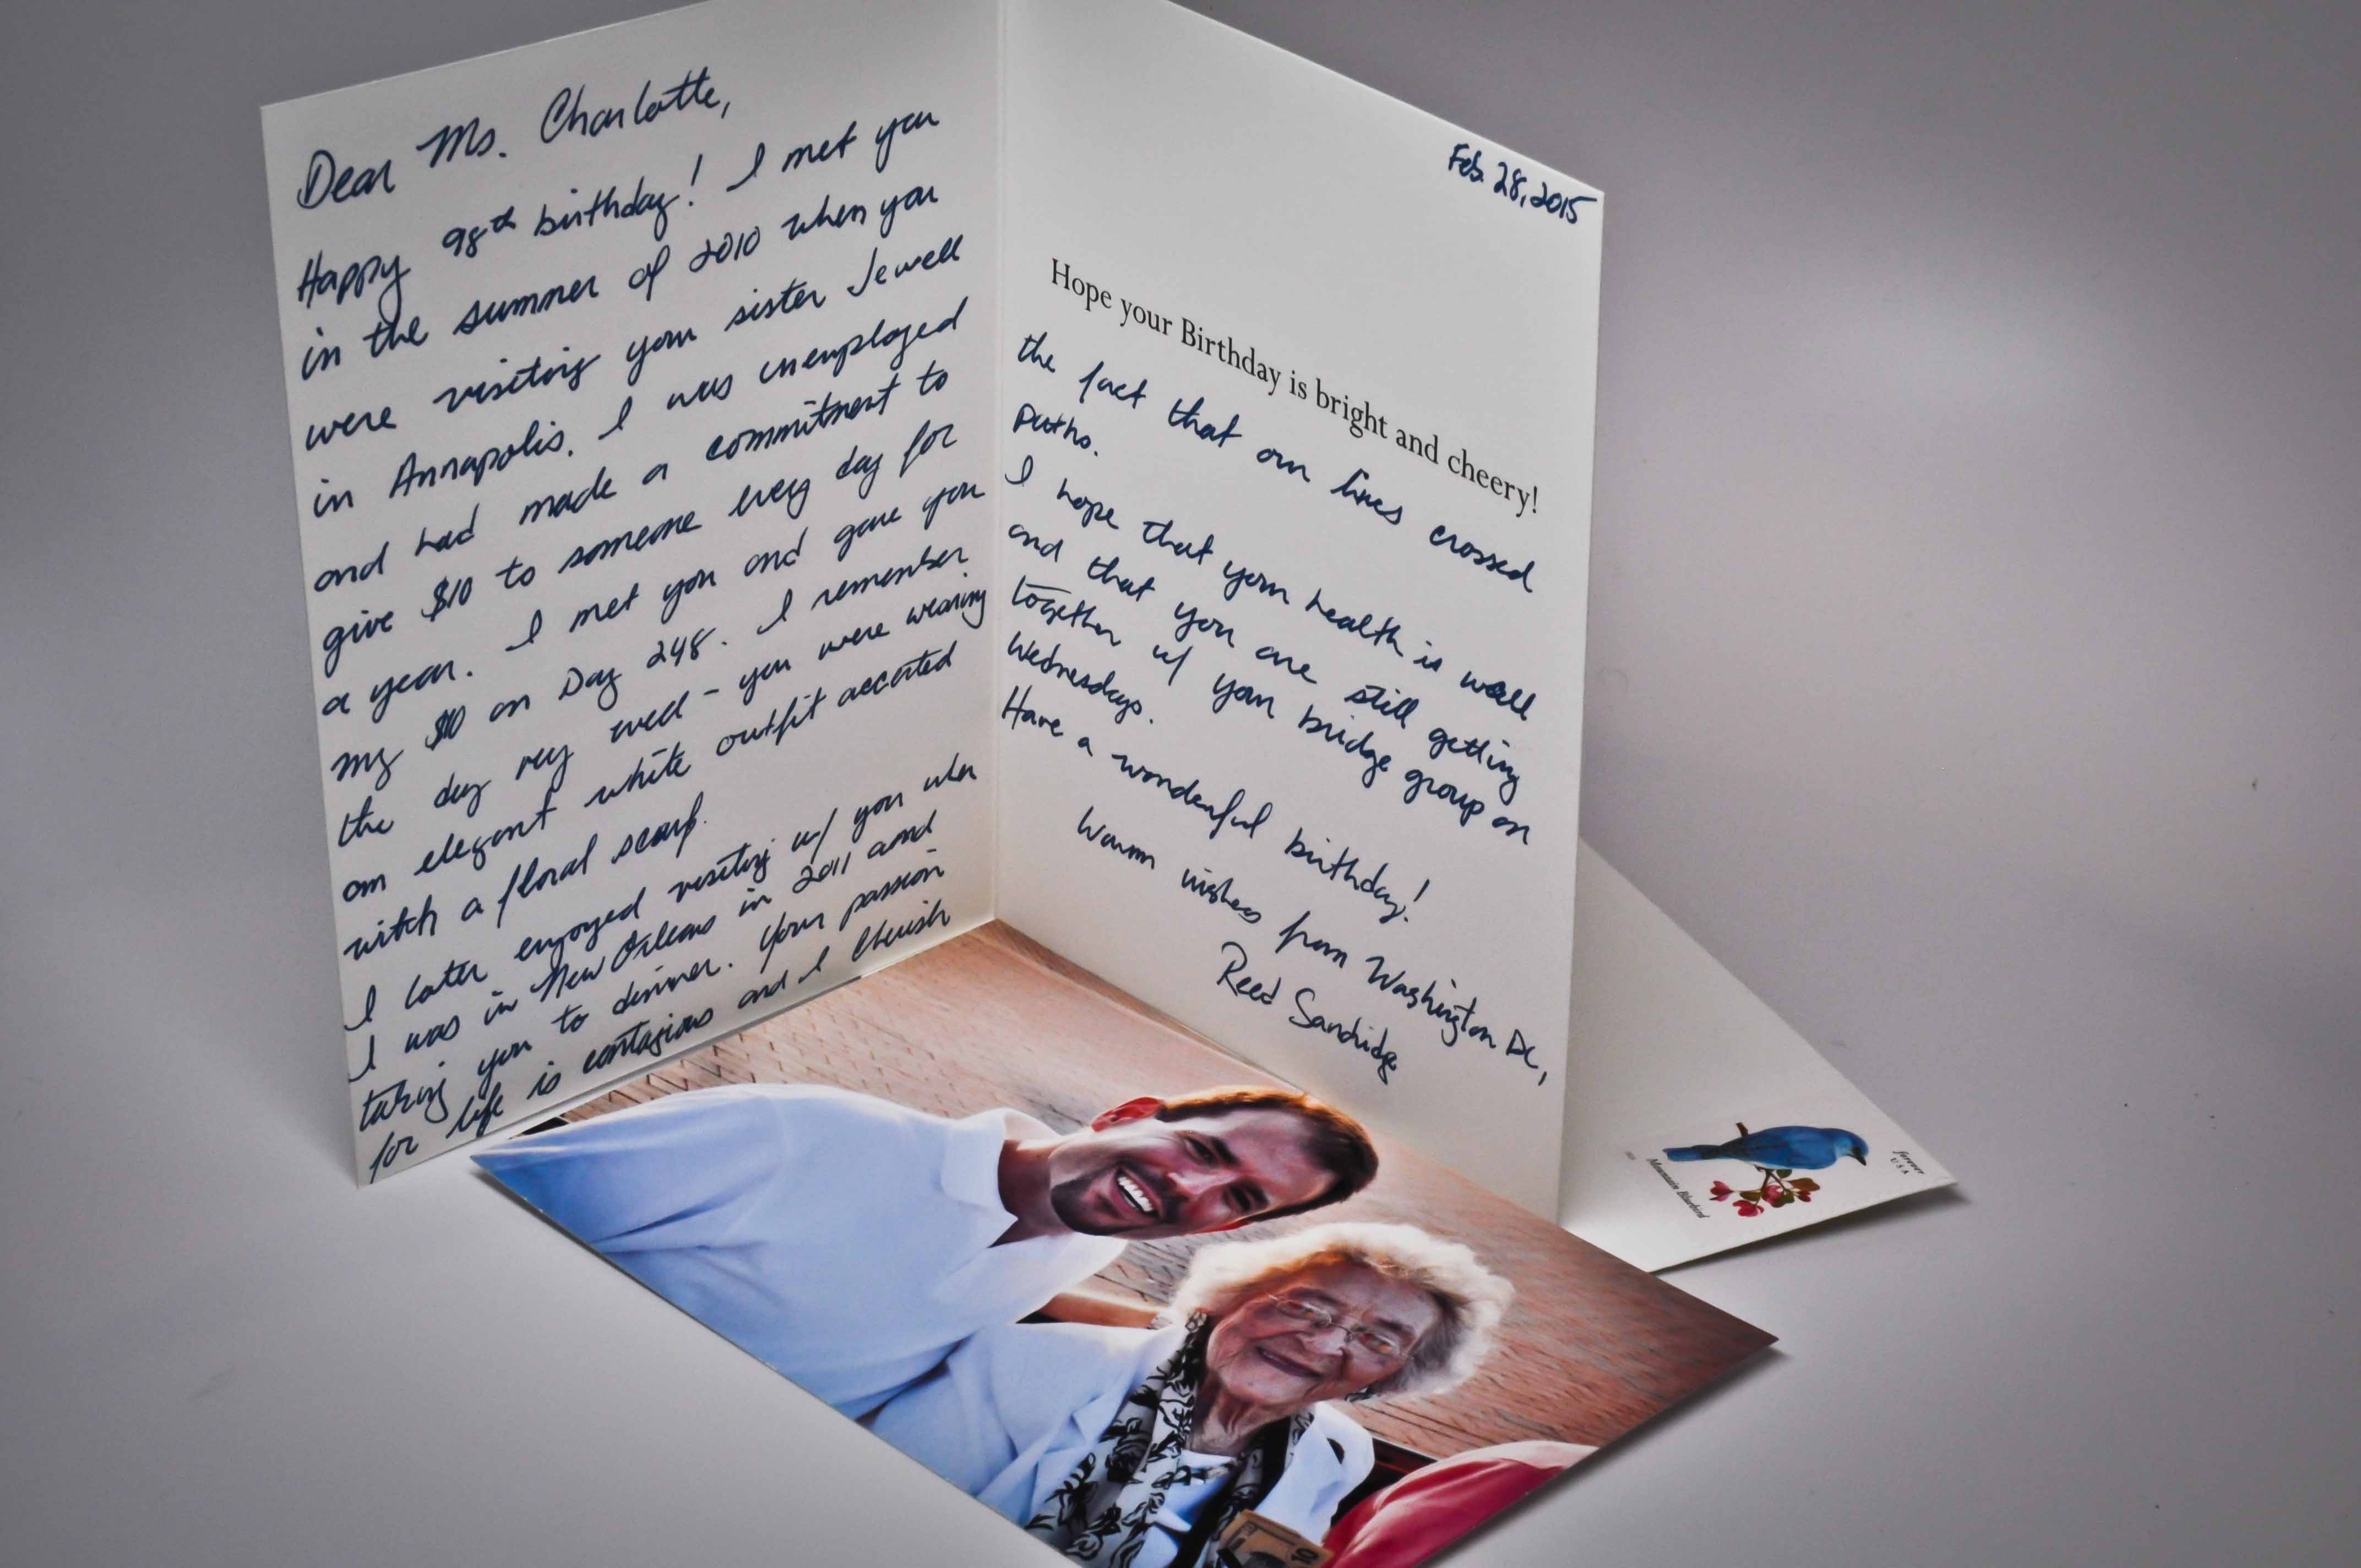 Dear Ms. Charlotte,
Happy 98th birthday! I met you
in the summer of 2010 when you
were visiting your sister Jewell
in Annapolis. I was unemployed
and had made a commitment to
give $10 to someone every day for
a year. I met you and gave you
my $10 on Day 248. I remember
the day very well - you were wearing
an elegant white outfit accented
with a floral scarf.
I later enjoyed visiting w/ you when
I was in New Orleans in 2011 and
taking you to dinner. Your passion
for life is contagious and I cherish
Feb. 28, 2015
Hope your Birthday is bright and cheery!
the fact that our lives crossed
paths.
I hope that your health is well
and that you are still getting
together w/ your bridge group on
Wednesdays.
Have a wonderful birthday!
Warm wishes from Washington DC,
Reed Sandridge
forever
USA
Mountain Bluebird
10